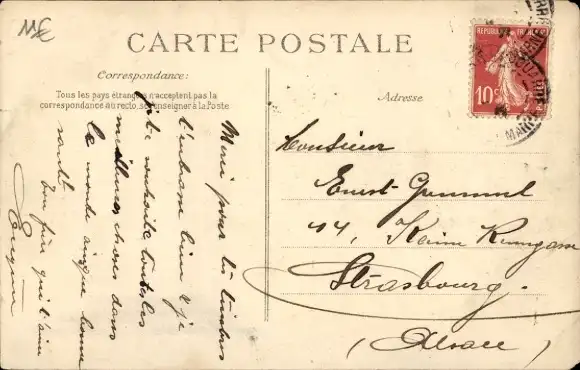 CARTE POSTALE
Correspondance:
Tous les pays étrangers n'acceptent pas la
correspondance au recto, se renseigner à la Poste
Adresse
REPUBLIQUE FRANÇAISE
10c
Merci pour les timbres
t'embrasse bien & je
te souhaite toutes les
meilleures choses dans
le monde ainsi que bonne
santé
Ton frère qui t'aime
Monsieur
Ernst
44,
Strasbourg.
(Alsace)